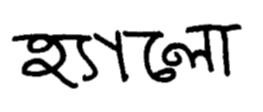 হ্যালো